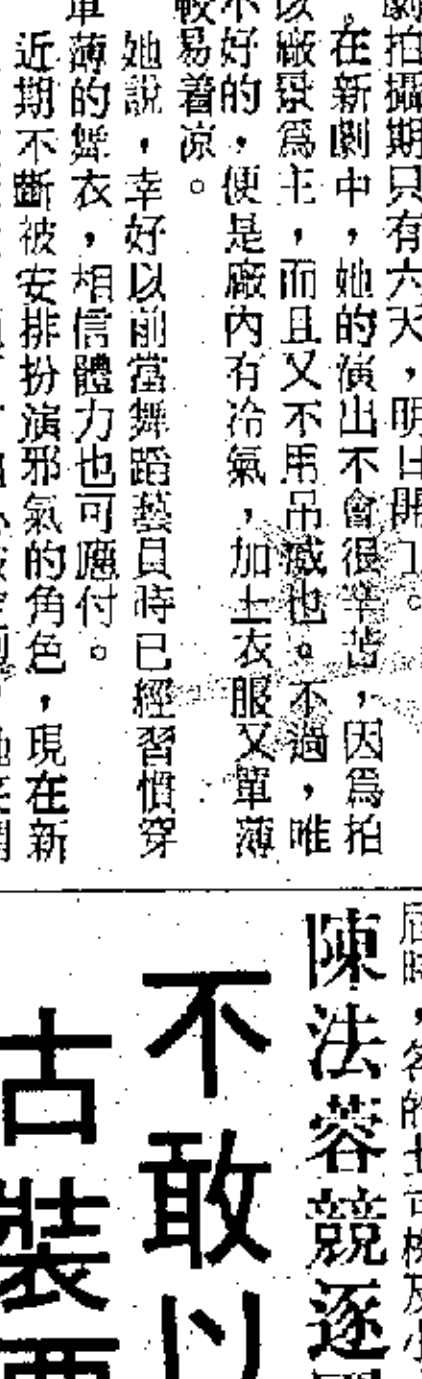 劇拍攝期只有六天，明日開工。
在新劇中，她的演出不會很辛苦，因爲拍
以廠景爲主，而且又不用吊威也。不過，唯
不好的，便是廠內有冷氣，加上衣服又單薄
較易着凉。
她說，幸好以前當舞蹈藝員時已經習慣穿
單薄的舞衣，相信體力也可應付。
近期不斷被安排扮演邪氣的角色，現在新
屆時，各的士司機及小
陳法蓉競逐
不敢以
古裝